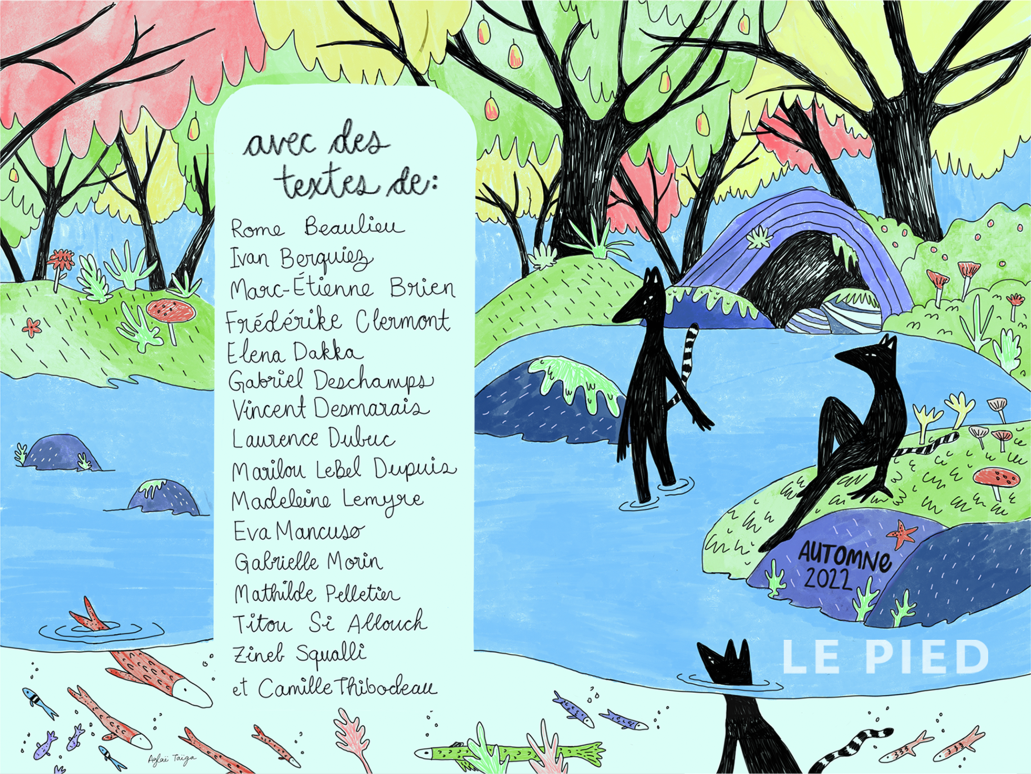 avec des
textes de:
Rome Beaulieu
Ivan Berquiez
Marc-Étienne Brien
Frédérike Clermont
Elena Dakka
Gabriel Deschamps
Vincent Desmarais
Laurence Dubuc
Marilou LeBel Dupuis
Madeleine Lemyre
Eva Mancuso
Gabrielle Morin
Mathilde Pelletier
Titou Si Allouch
Zineb Squalli
et Camille Thibodeau
AUTOMNE
2022
LE PIED
Aglaé Taiga